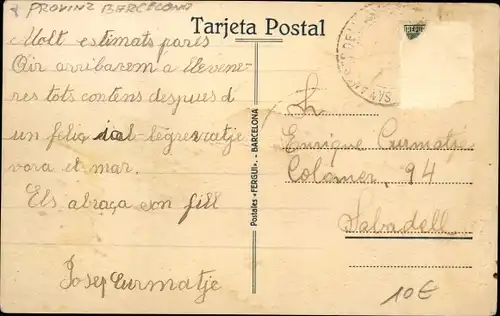 PROVINZ BARCELONA
Tarjeta Postal
Molt estimats pares
Air arribarem a Llevene-
res tots contens despues d
un feliç
vora el mar.
Els abraça son fill
Josep Curmatje
Postales «FERGUI». - BARCELONA
Sr.
Enrique Curmatje
Colomer, 94
Sabadell
10€